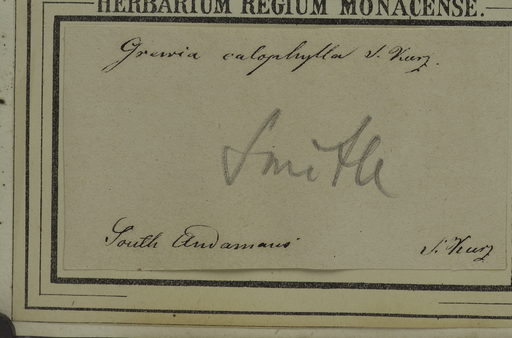 HERBARIUM REGIUM MONACENSE.
Grewia calophylla S. Kurz.
Smith
South Andamans
S. Kurz